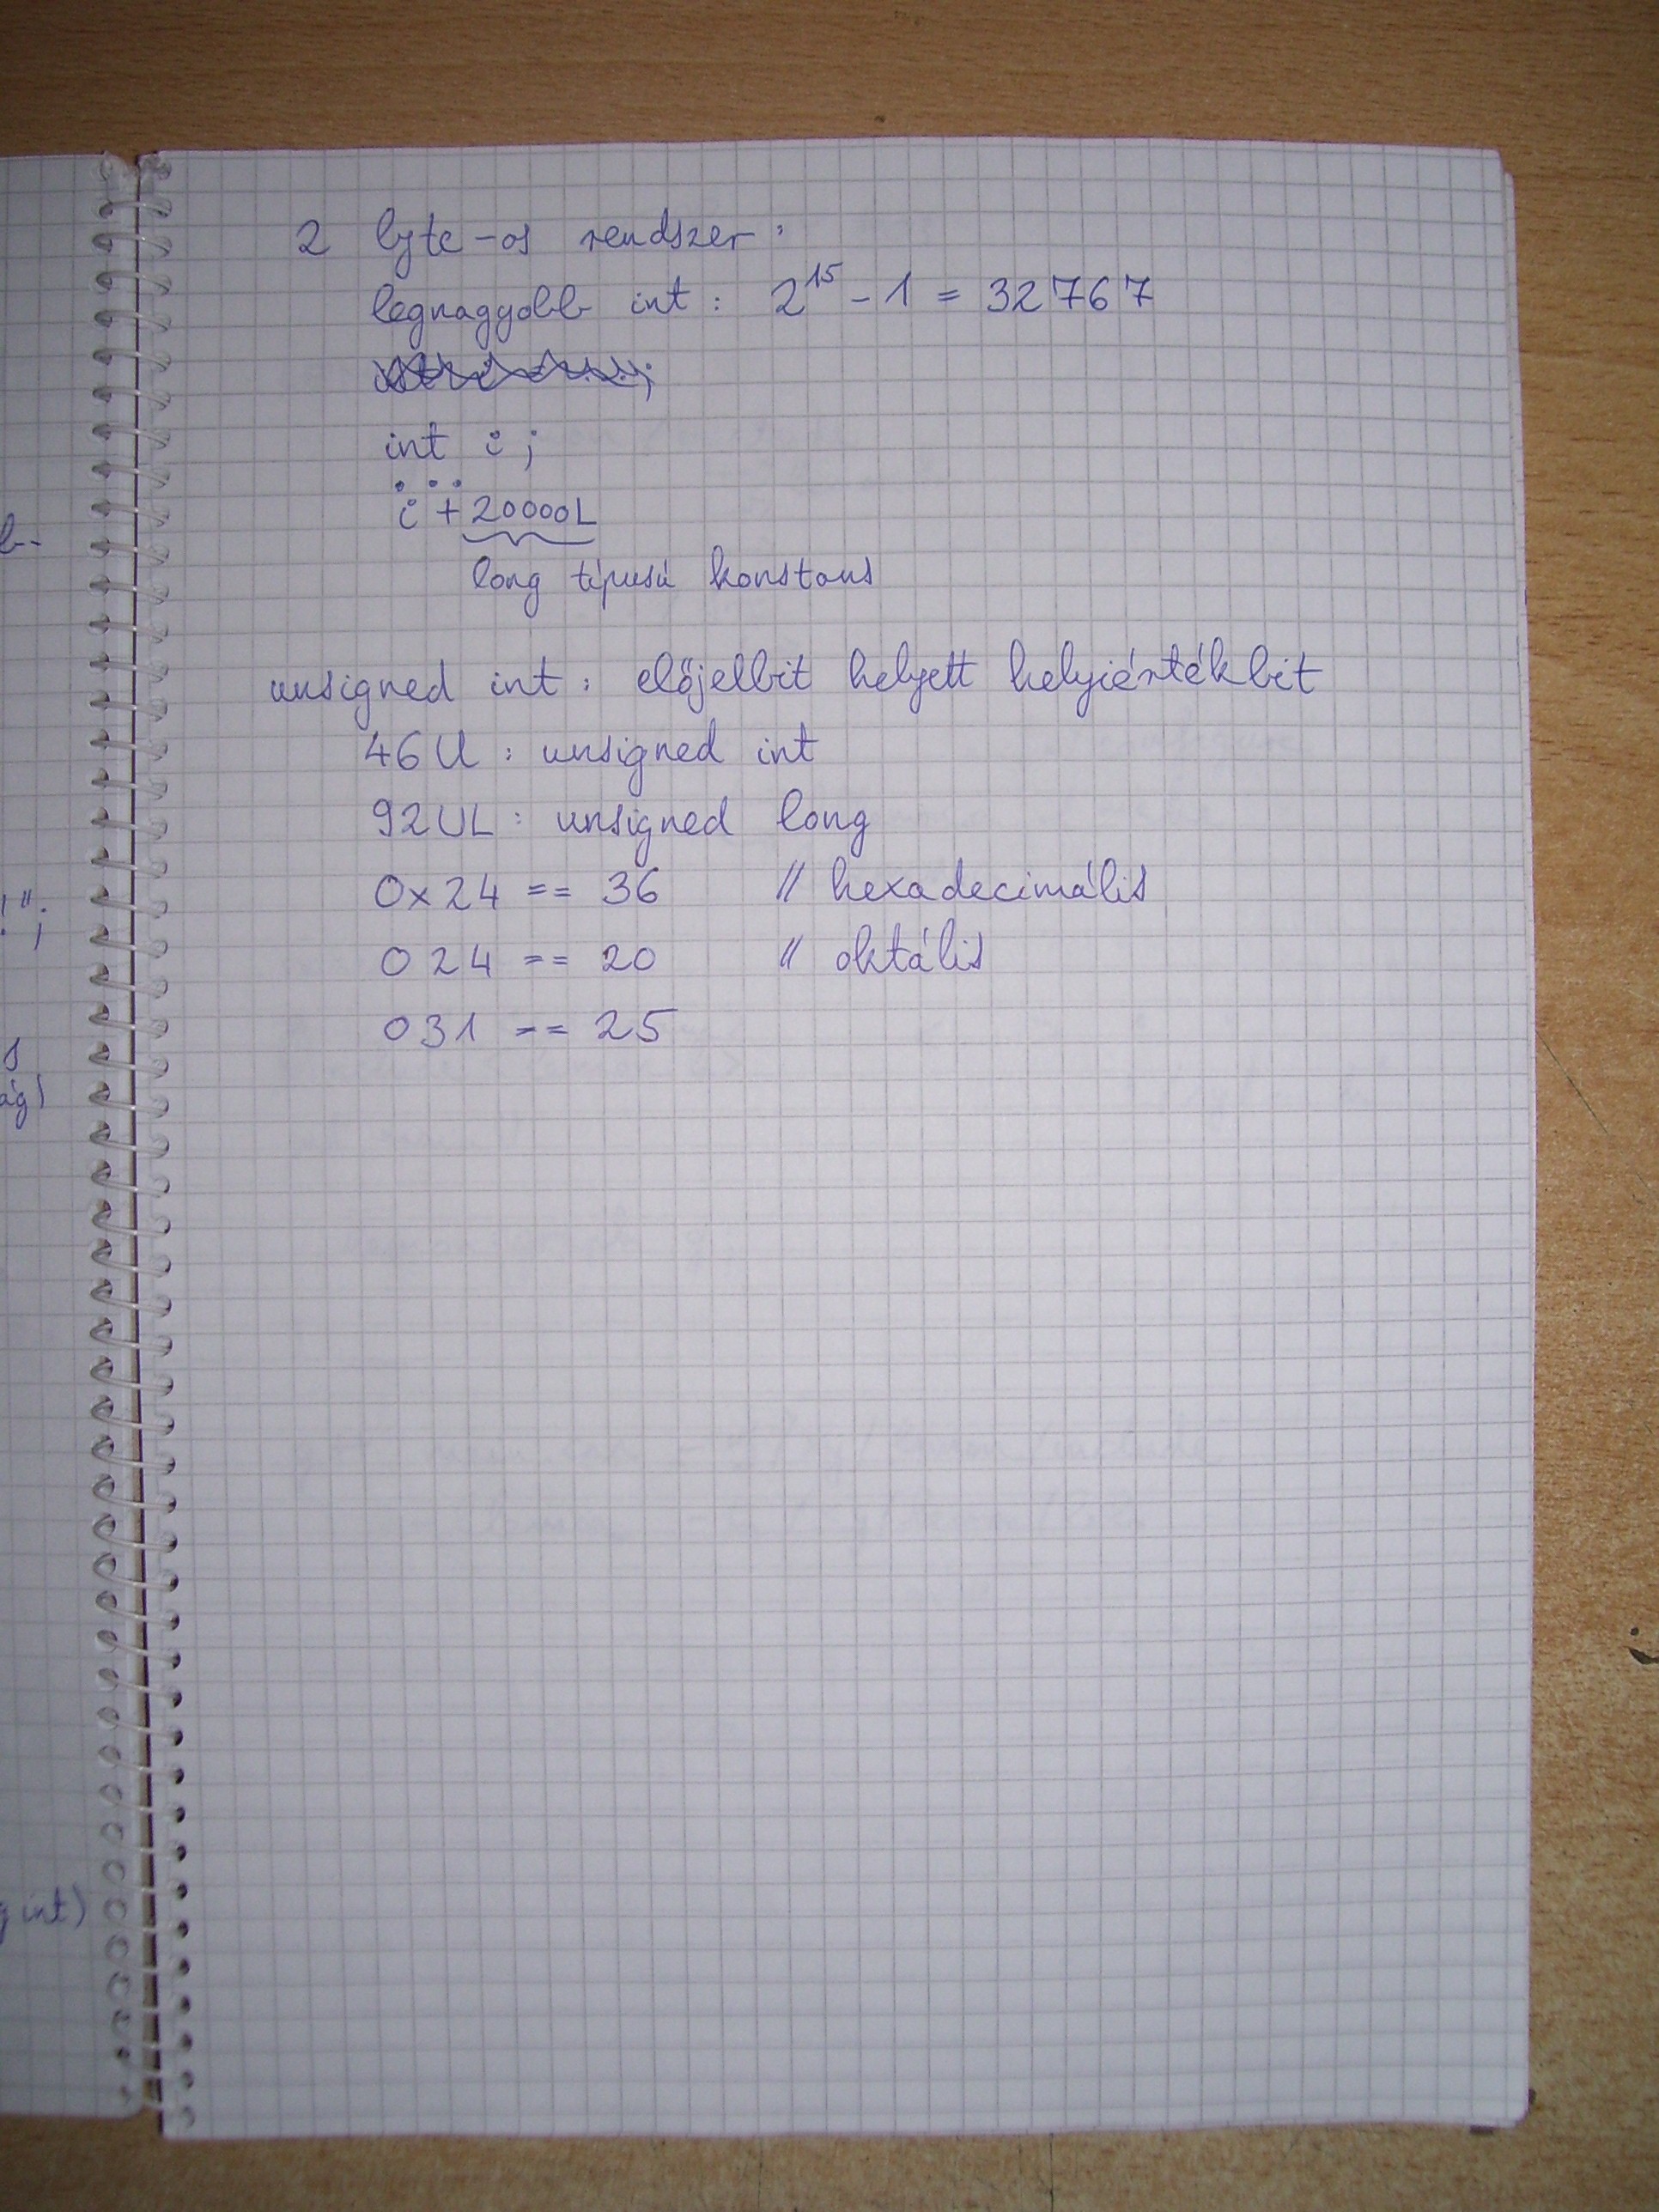 2 byte-os rendszer:
legnagyobb int: 2¹⁵ - 1 = 32767
int i;
...
i + 20000L
long típusú konstans
unsigned int: előjelbit helyett helyiértékbit
46U: unsigned int
92UL: unsigned long
0x24 == 36 // hexadecimális
024 == 20 // oktális
031 == 25
b-
!";
s
ág)
g int)